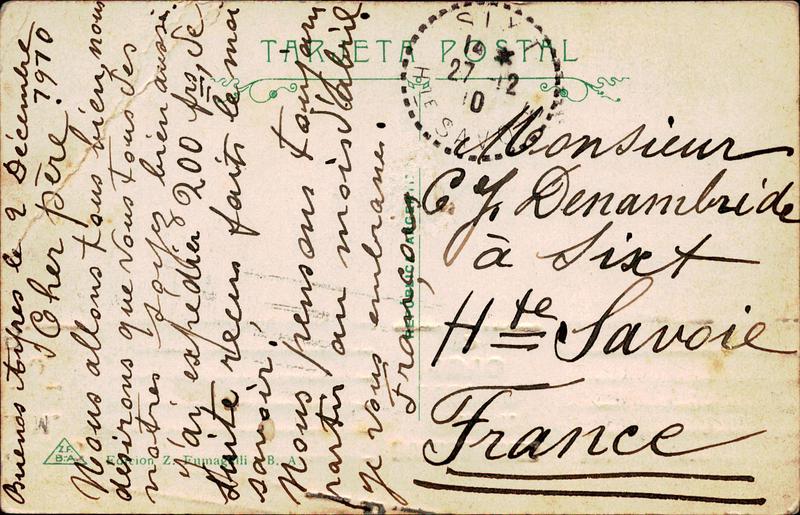 TARJETA POSTAL
SIXT
14 *
27 - 12
10
HTE SAVOIE
Buenos Ayres le 2 Décembre
1910
Cher père
Nous allons tous bien, nous
désirons que vous tous des
nôtres soyez bien aussi.
J'ai expédier 200 frs, de
suite reçus faits le moi
savoir,
Nous pensons toujours
partir au mois d'abril.
je vous embrasse.
François
Monsieur
C J Denambride
à Sixt
Hte Savoie
France
Z.F.
B.A.
Edicion Z. Fumagalli B. A.